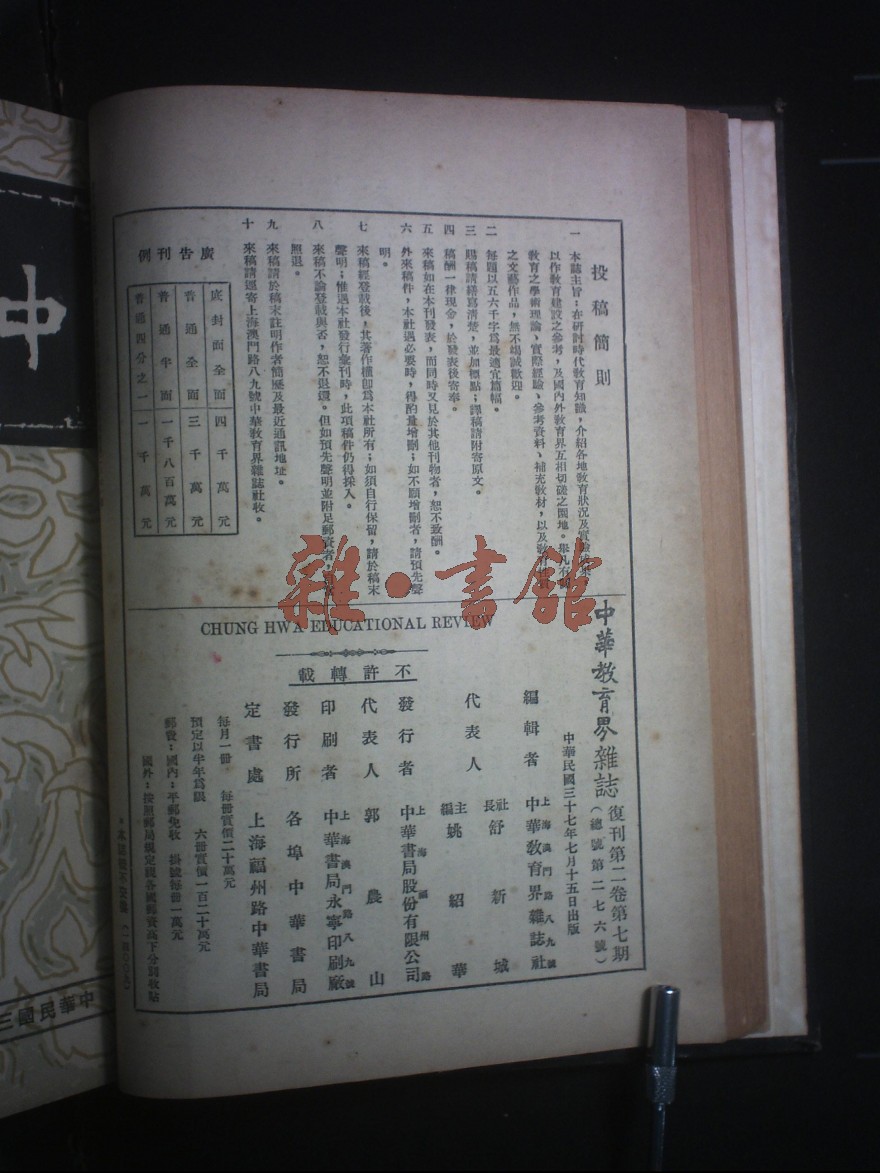 投稿簡則
一　本誌主旨：在研討時代教育知識，介紹各地教育狀況及實
以作教育建設之參考，及國內外教育界互相切磋之園地。舉凡有
教育之學術理論、實際經驗、參考資料、補充教材，以及教育
之文藝作品，無不竭誠歡迎。
二　每題以五六千字爲最適宜篇幅。
三　賜稿請繕寫清楚，並加標點；譯稿請附寄原文。
四　稿酬一律現金，於發表後寄奉。
五　來稿如在本刊發表，而同時又見於其他刊物者，恕不致酬。
六　外來稿件，本社遇必要時，得酌量增刪；如不願增刪者，請預先聲
明。
七　來稿經登載後，其著作權卽爲本社所有；如須自行保留，請於稿末
聲明；惟遇本社發行彙刊時，此項稿件仍得採入。
八　來稿不論登載與否，恕不退還。但如預先聲明並附足郵資者，
照退。
九　來稿請於稿末註明作者簡歷及最近通訊地址。
十　來稿請逕寄上海澳門路八九號中華教育界雜誌社收。
廣告刊例
底封面全面　四千萬元
普通全面　三千萬元
普通半面　一千八百萬元
普通四分之一　一千萬元
雜·書館
CHUNG HWA EDUCATIONAL REVIEW
中華教育界雜誌　復刊第二卷第七期
（總號第二七六號）
中華民國三十七年七月十五日出版
編輯者　上海澳門路八九號　中華教育界雜誌社
代表人　社長　舒新城
主編　姚紹華
不許轉載
發行者　上海福州路　中華書局股份有限公司
代表人　郭農山
印刷者　上海澳門路八九號　中華書局永寧印刷廠
發行所　各埠中華書局
定書處　上海福州路中華書局
每月一冊　每冊實價二十萬元
預定以半年爲限　六冊實價一百二十萬元
郵費：國內：平郵免收　掛號每冊一萬元
國外：按照郵局規定視各國郵資高下分別收帖
中
中華民國三